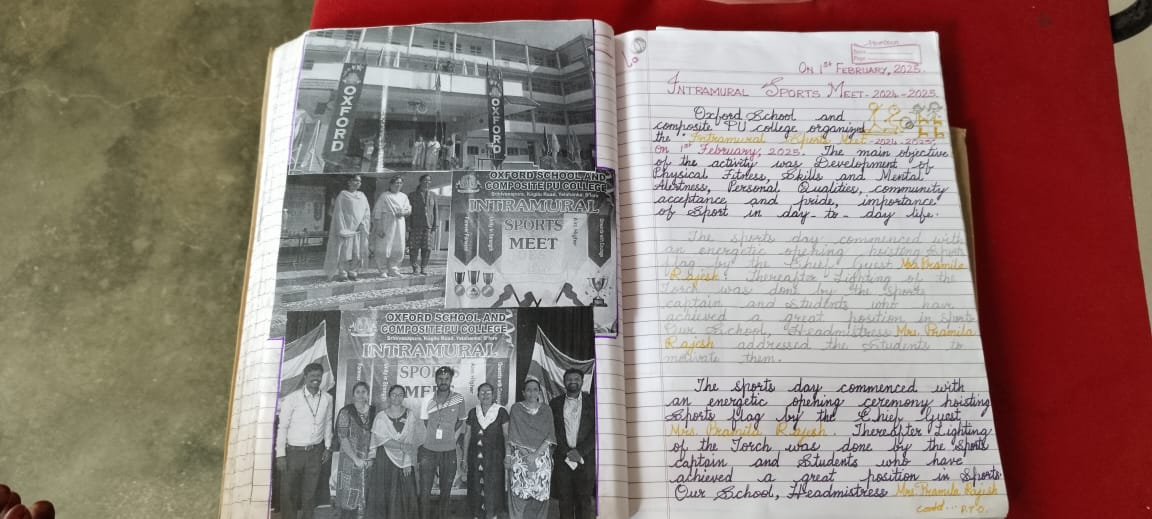 OXFORD
OXFORD
OXFORD SCHOOL AND
COMPOSITE PU COLLEGE
Srinivasapura, Kogilu Road, Yelahanka, B'lure
INTRAMURAL
SPORTS
MEET
OXFORD SCHOOL AND
COMPOSITE PU COLLEGE
Srinivasapura, Kogilu Road, Yelahanka, B'lure
INTRAMURAL
SPORTS
ON 1st FEBRUARY, 2025.
INTRAMURAL SPORTS MEET - 2024-2025.
Oxford School and
composite PU college organized
the "Intramural Sports Meet -2024-2025,
on 1st February, 2025. The main objective
of the activity was Development of
Physical Fitness, Skills and Mental
Alertness, Personal Qualities, community
acceptance and pride, importance
of Sport in day-to-day life.
The sports day commenced with
an energetic opening hoisting Sports
flag by the Chief Guest Mrs. Pramila
Rajesh. Thereafter Lighting of the
Torch was done by the Sports
captain and Students who have
achieved a great position in Sports
Our School, Headmistress Mrs. Pramila
Rajesh addressed the Students to
motivate them.
The sports day commenced with
an energetic opening ceremony hoisting
Sports flag by the Chief Guest
Mrs. Pramila Rajesh. Thereafter Lighting
of the Torch was done by the Sports
captain and Students who have
achieved a great position in Sports.
Our School, Headmistress Mrs. Pramila Rajesh
contd... P.T.O.